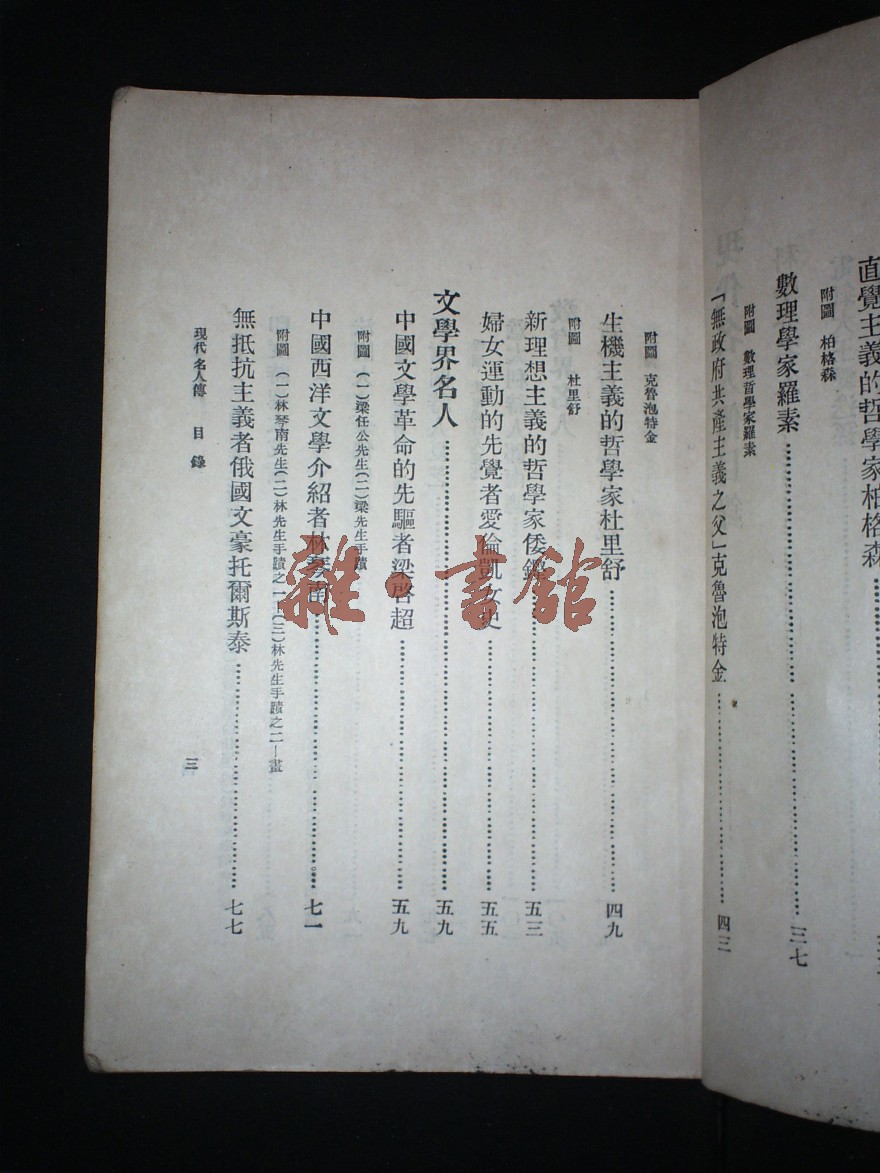 直覺主義的哲學家柏格森
附圖 柏格森
數理學家羅素 三七
附圖 數理哲學家羅素
「無政府共產主義之父」克魯泡特金 四三
附圖 克魯泡特金
生機主義的哲學家杜里舒 四九
附圖 杜里舒
新理想主義的哲學家倭鏗 五三
婦女運動的先覺者愛倫凱女史 五五
文學界名人 五九
中國文學革命的先驅者梁啓超 五九
附圖 (一)梁任公先生(二)梁先生手蹟
中國西洋文學介紹者林琴南 七一
附圖 (一)林琴南先生(二)林先生手蹟之一(三)林先生手蹟之二—畫
無抵抗主義者俄國文豪托爾斯泰 七七
現代名人傳 目錄
三
雜·書館